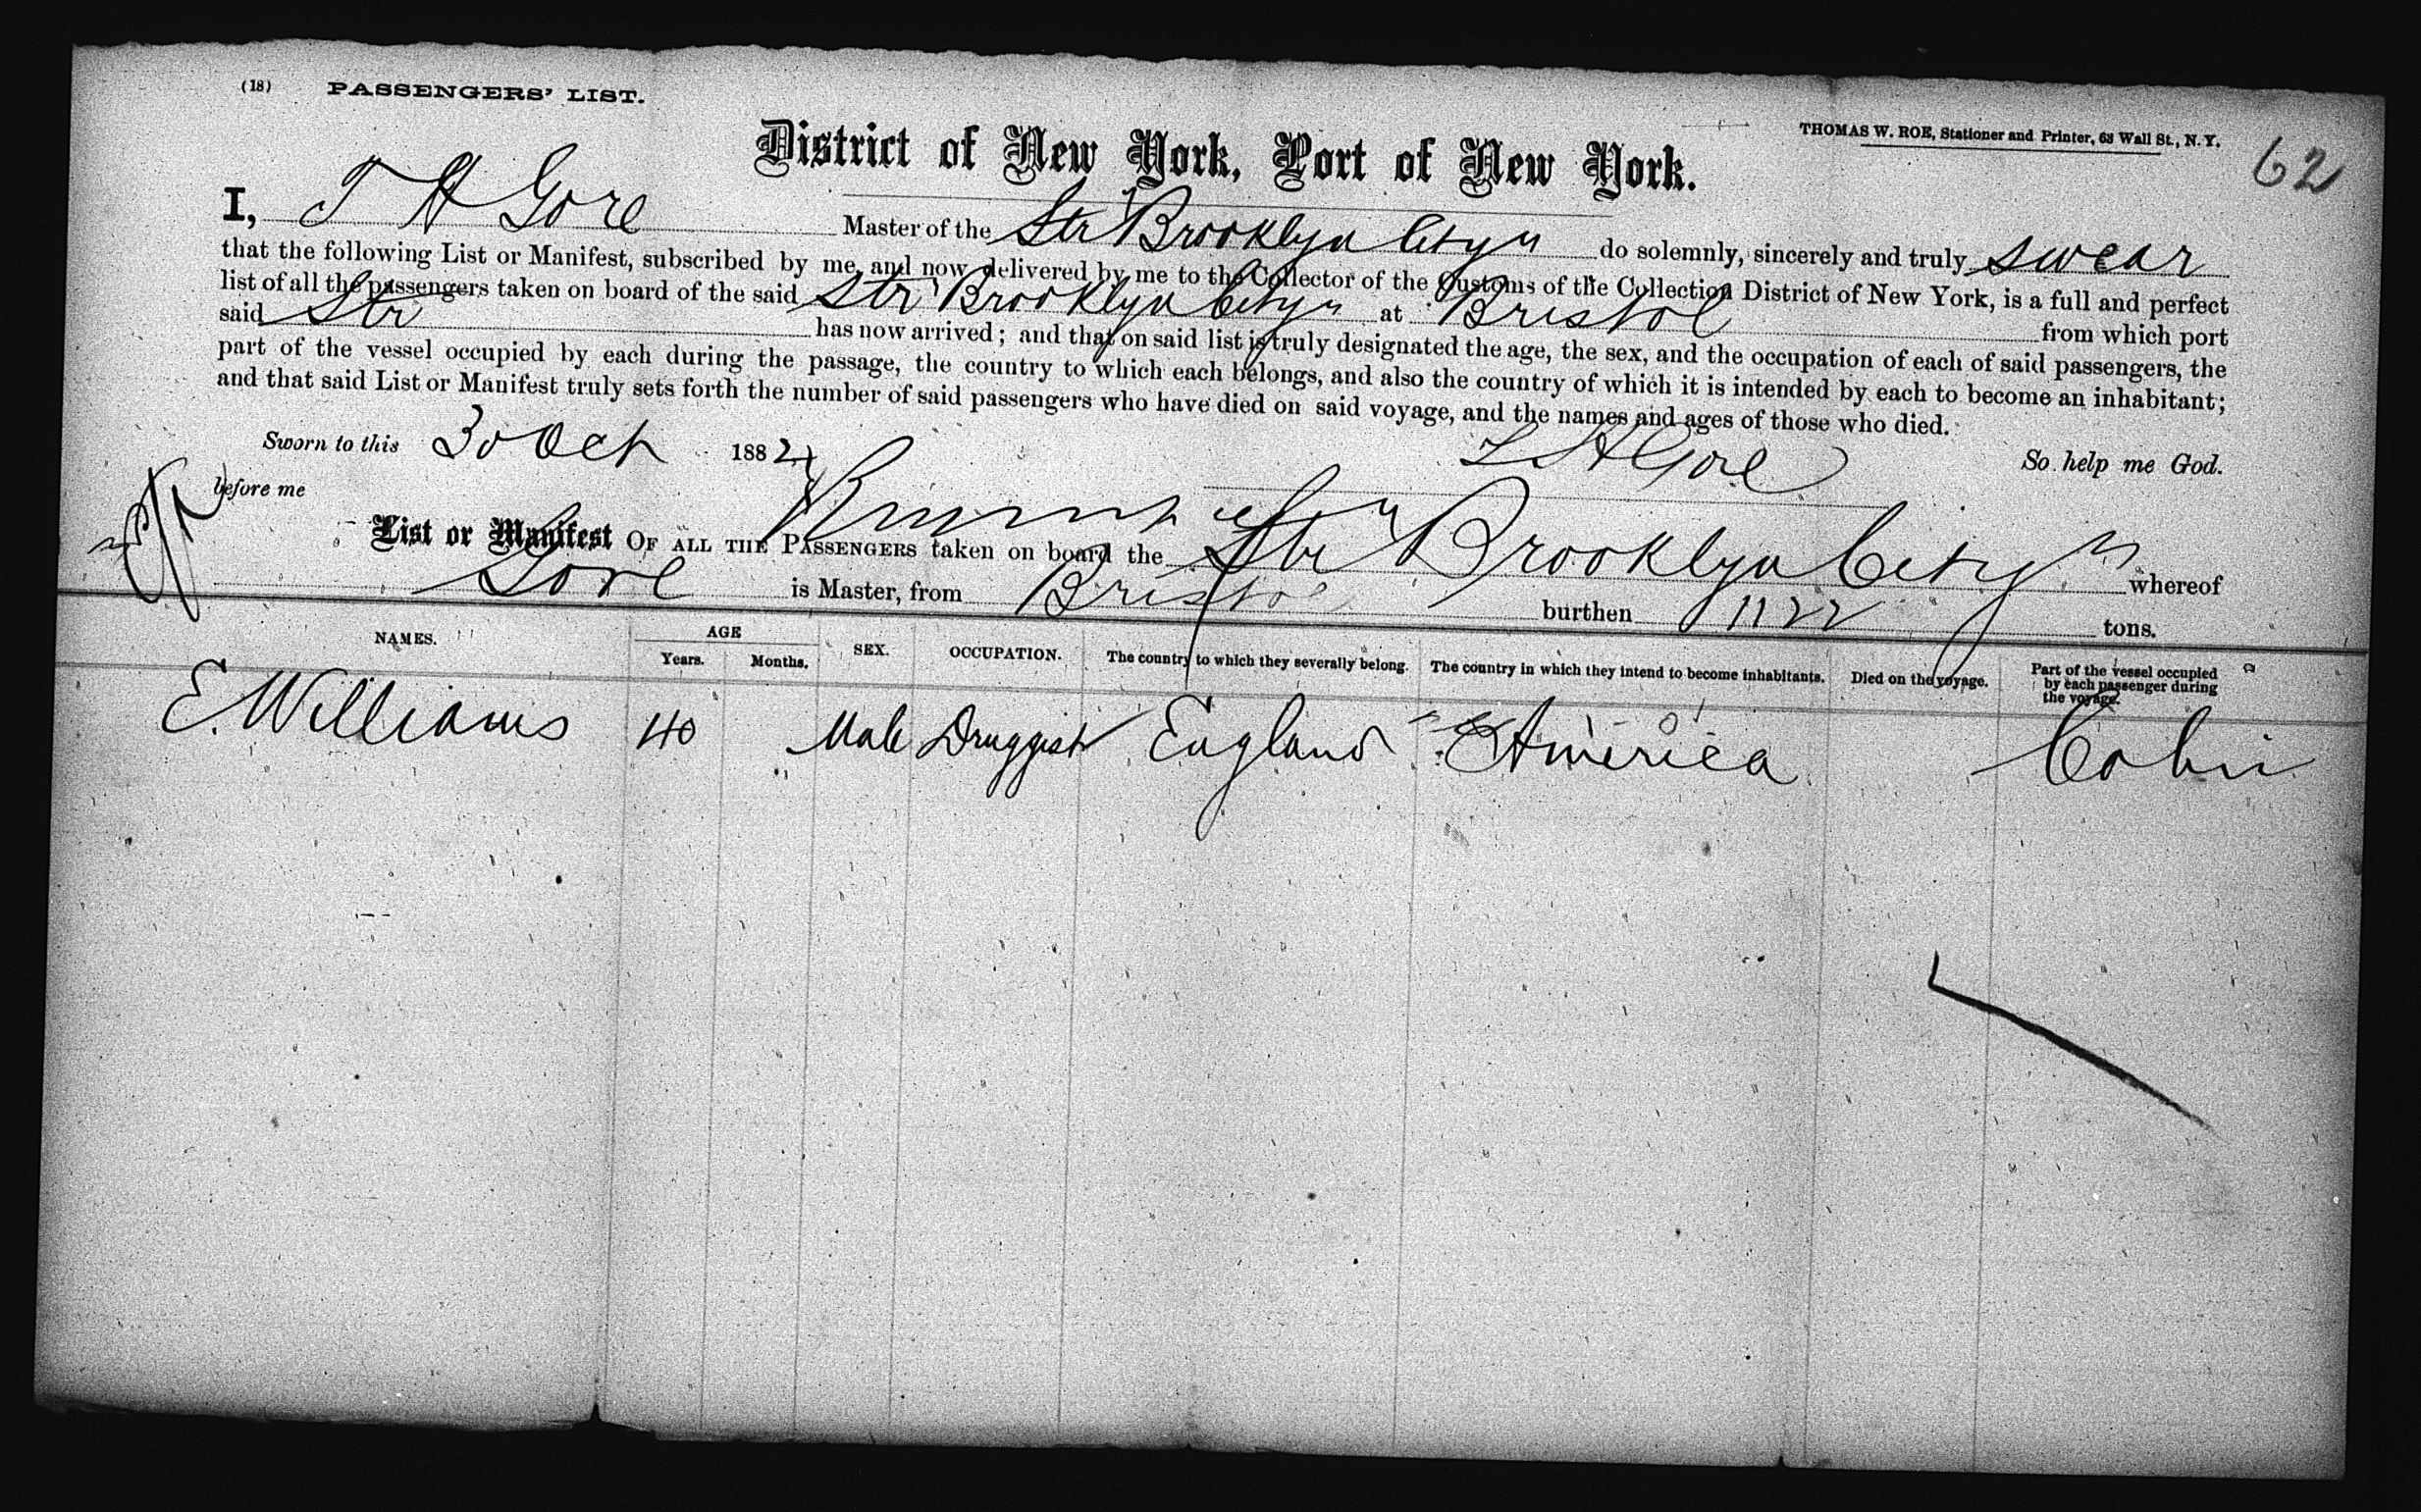 (18) PASSENGERS' LIST.
THOMAS W. ROE, Stationer and Printer, 63 Wall St., N. Y.
62
District of New York, Port of New York.
I, T H Gore Master of the Str "Brooklyn City" do solemnly, sincerely and truly swear
that the following List or Manifest, subscribed by me, and now delivered by me to the Collector of the Customs of the Collection District of New York, is a full and perfect
list of all the passengers taken on board of the said Str "Brooklyn City" at Bristol from which port
said Str has now arrived; and that on said list is truly designated the age, the sex, and the occupation of each of said passengers, the
part of the vessel occupied by each during the passage, the country to which each belongs, and also the country of which it is intended by each to become an inhabitant;
and that said List or Manifest truly sets forth the number of said passengers who have died on said voyage, and the names and ages of those who died.
Sworn to this 30 Oct 1882 T H Gore So help me God.
before me
List or Manifest OF ALL THE PASSENGERS taken on board the Str "Brooklyn City" whereof
Gore is Master, from Bristol burthen 1122 tons.
NAMES. AGE Years. Months. SEX. OCCUPATION. The country to which they severally belong. The country in which they intend to become inhabitants. Died on the voyage. Part of the vessel occupied by each passenger during the voyage.
E. Williams 40 Male Druggist England America Cabin